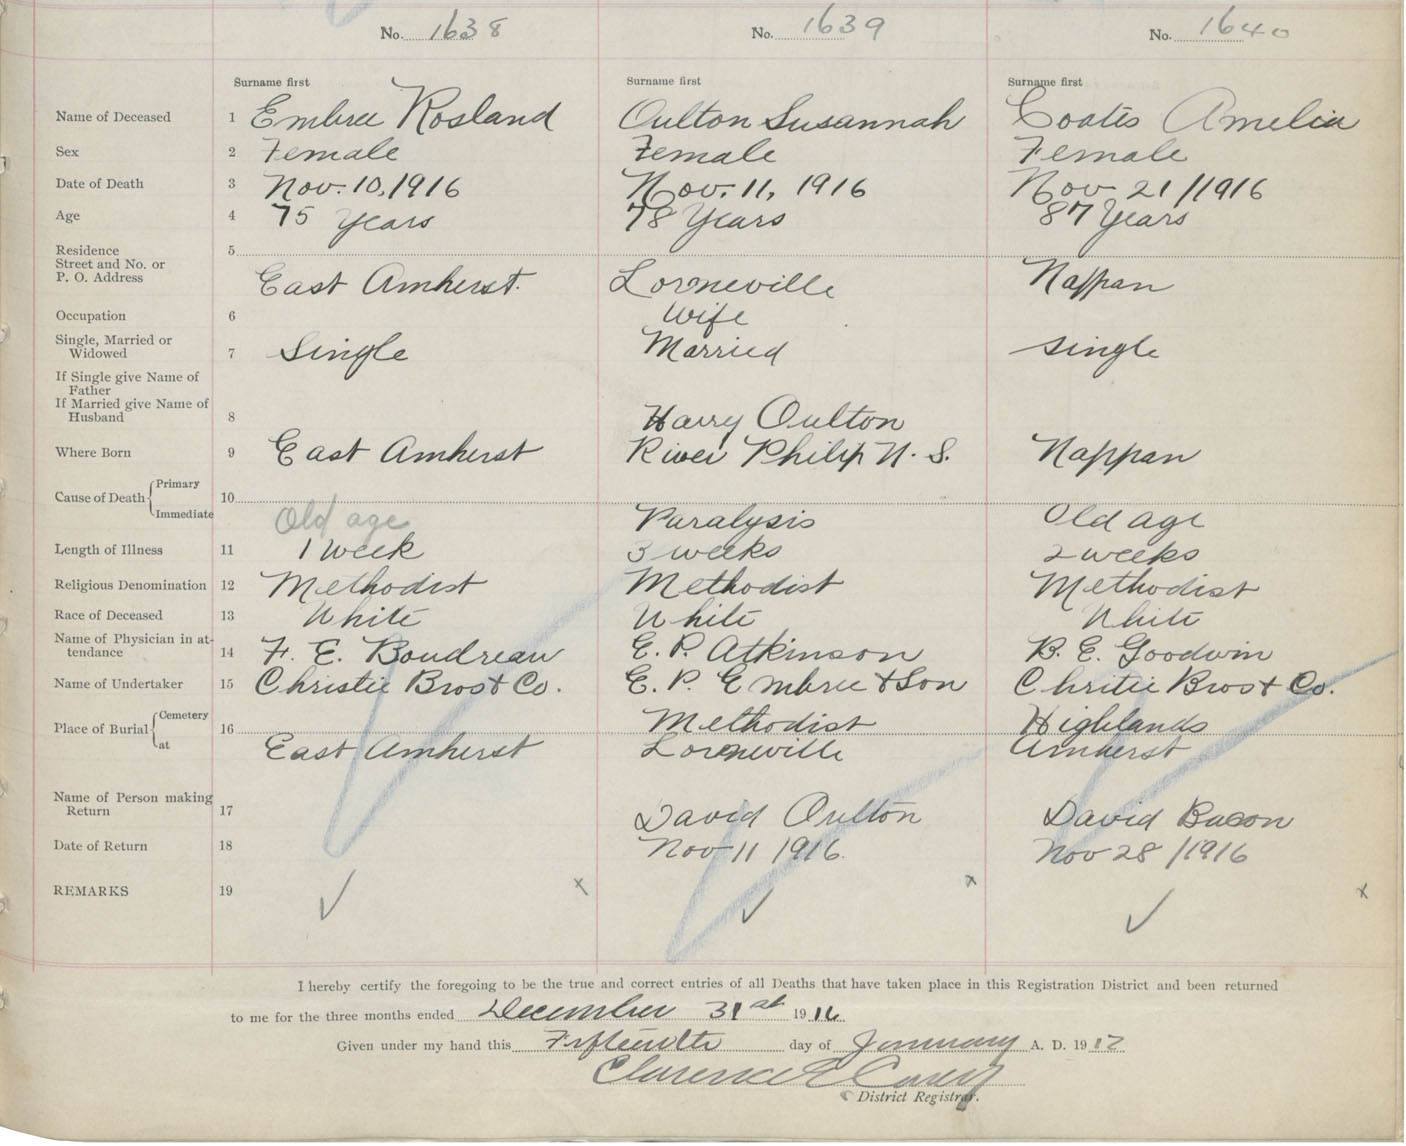 No. 1638 No. 1639 No. 1640
Surname first Surname first Surname first
Name of Deceased 1 Embree Rosland Oulton Susannah Coates Amelia
Sex 2 Female Female Female
Date of Death 3 Nov. 10, 1916 Nov. 11, 1916 Nov 21/1916
Age 4 75 years 78 Years 87 Years
Residence 5
Street and No. or
P. O. Address East Amherst. Lorneville Nappan
Occupation 6 Wife
Single, Married or
Widowed 7 Single Married Single
If Single give Name of
Father
If Married give Name of
Husband 8 Harry Oulton
Where Born 9 East Amherst River Philip N. S. Nappan
Cause of Death Primary 10
Immediate Old age Paralysis Old age
Length of Illness 11 1 week 3 weeks 2 weeks
Religious Denomination 12 Methodist Methodist Methodist
Race of Deceased 13 White White White
Name of Physician in at-
tendance 14 F. E. Boudreau E. P. Atkinson B. E. Goodwin
Name of Undertaker 15 Christie Bros & Co. E. P. Embree & Son Chritie Bros & Co.
Place of Burial Cemetery 16 Methodist Highlands
at East Amherst Lorneville Amherst
Name of Person making
Return 17 David Oulton David Bacon
Date of Return 18 Nov 11 1916. Nov 28/1916
REMARKS 19
I hereby certify the foregoing to be the true and correct entries of all Deaths that have taken place in this Registration District and been returned
to me for the three months ended December 31st 1916
Given under my hand this Fifteenth day of January A. D. 1917
Clarence E Casey
District Registrar.